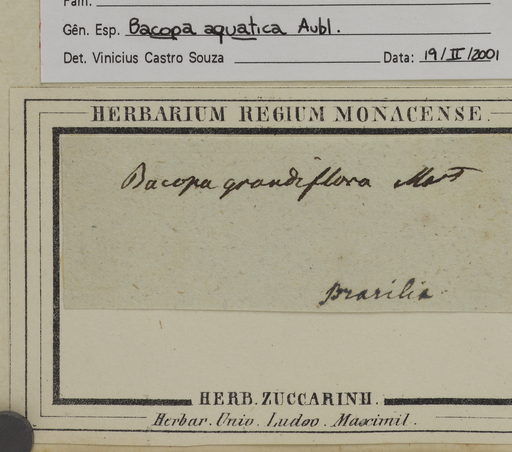 Fam.
Gên. Esp. Bacopa aquatica Aubl.
Det. Vinicius Castro Souza Data: 19/II/2001
HERBARIUM REGIUM MONACENSE.
Bacopa grandiflora Mart
Brasilia
HERB. ZUCCARINII.
Herbar. Univ. Ludov. Maximil.